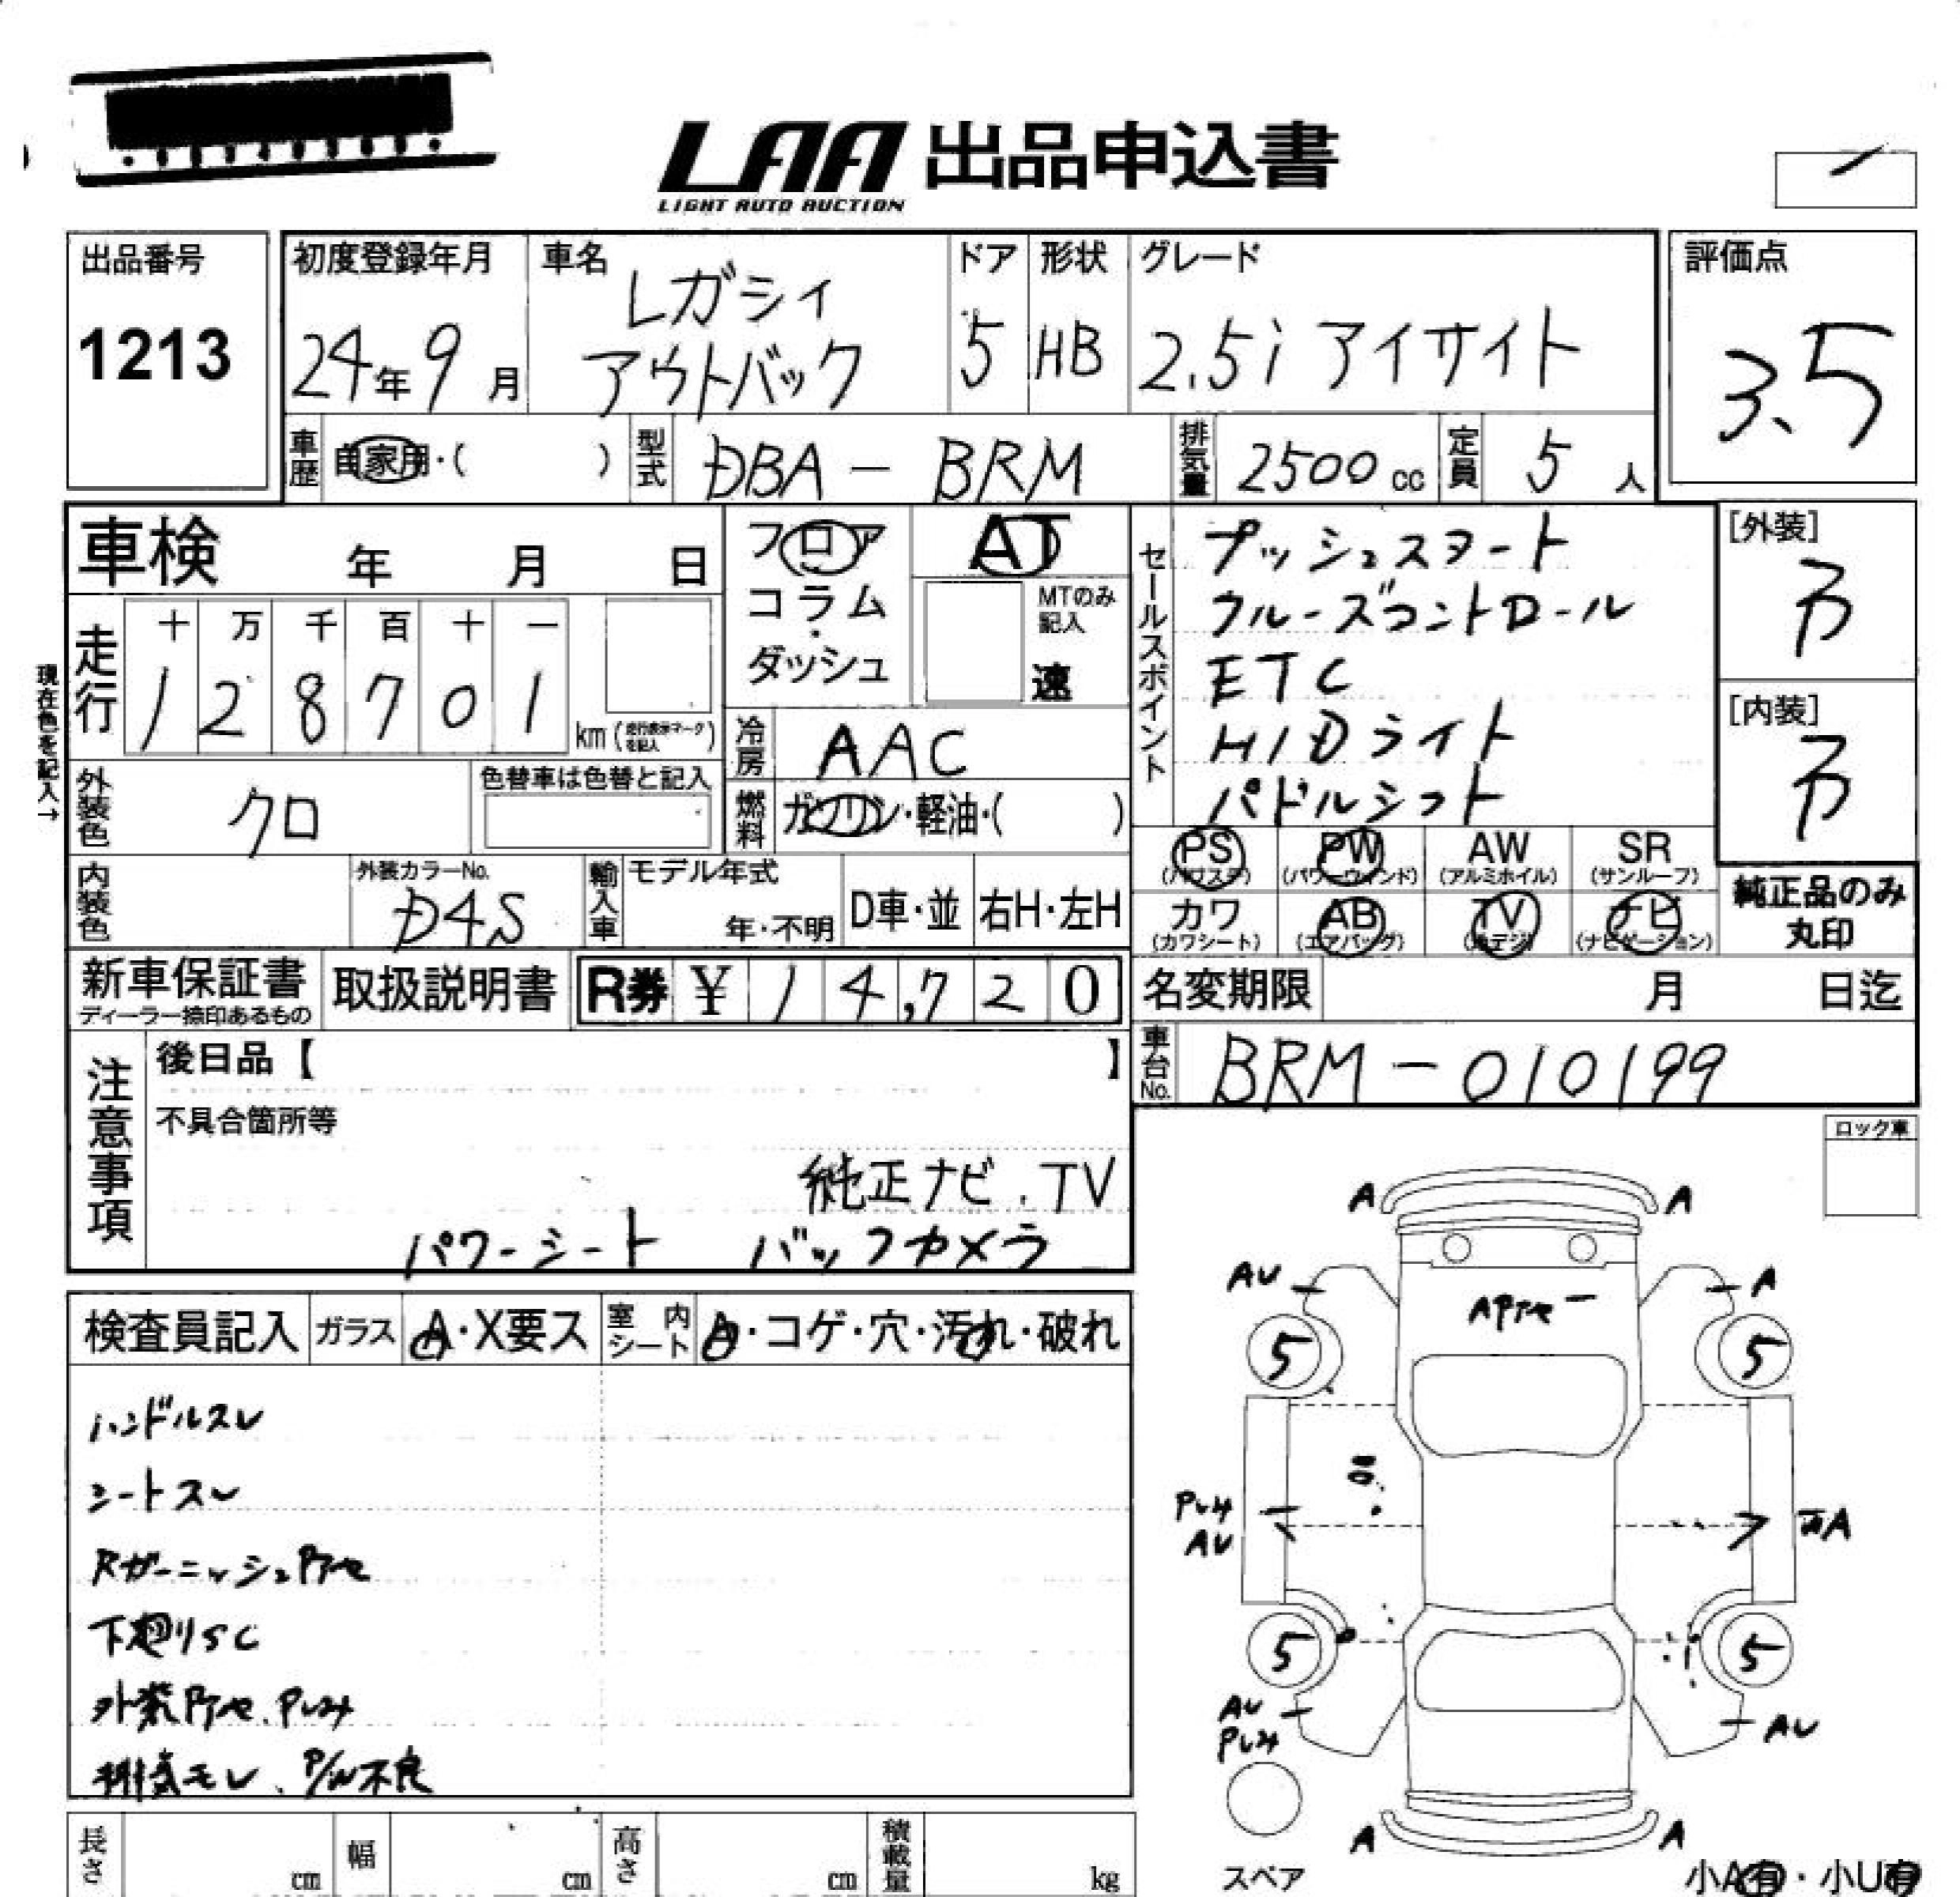 LAA 出品申込書
LIGHT AUTO AUCTION
出品番号
1213
初度登録年月
24年9月
車名
レガシィ
アウトバック
ドア
5
形状
HB
グレード
2.5i アイサイト
評価点
3.5
車歴 自家用・( )
型式 DBA-BRM
排気量 2500cc
定員 5人
車検 年 月 日
フロア
コラム
・
ダッシュ
AT
MTのみ
記入
速
セールスポイント
プッシュスタート
クルーズコントロール
ETC
HIDライト
パドルシフト
[外装]
[内装]
走行
十 万 千 百 十 一
1 2 8 7 0 1
km(走行表示マークを記入)
現在色を記入→
冷房 AAC
外装色 クロ
色替車は色替と記入
燃料 ガソリン・軽油・( )
PS PW AW SR
(パワステ) (パワーウィンド) (アルミホイル) (サンルーフ)
カワ AB TV ナビ
(カワシート) (エアバッグ) (地デジ) (ナビゲーション)
純正品のみ
丸印
内装色
外装カラーNo.
D4S
輸入車
モデル年式
年・不明
D車・並
右H・左H
新車保証書
ディーラー捺印あるもの
取扱説明書
R券 ¥ 14,720
名変期限 月 日迄
車台No. BRM-010199
注意事項
後日品【 】
不具合箇所等
純正ナビ.TV
パワーシート バックカメラ
ロック車
検査員記入
ガラス A・X要ス
室内シート A・コゲ・穴・汚れ・破れ
ハンドルスレ
シートスレ
Rガーニッシュアセ
下廻りSC
外装アセ.
排気モレ、P/W不良
A A
AU A
5 5
AU A
5 5
AU AU
A A
スペア
小A有・小U有
長さ cm
幅 cm
高さ cm
積載量 kg